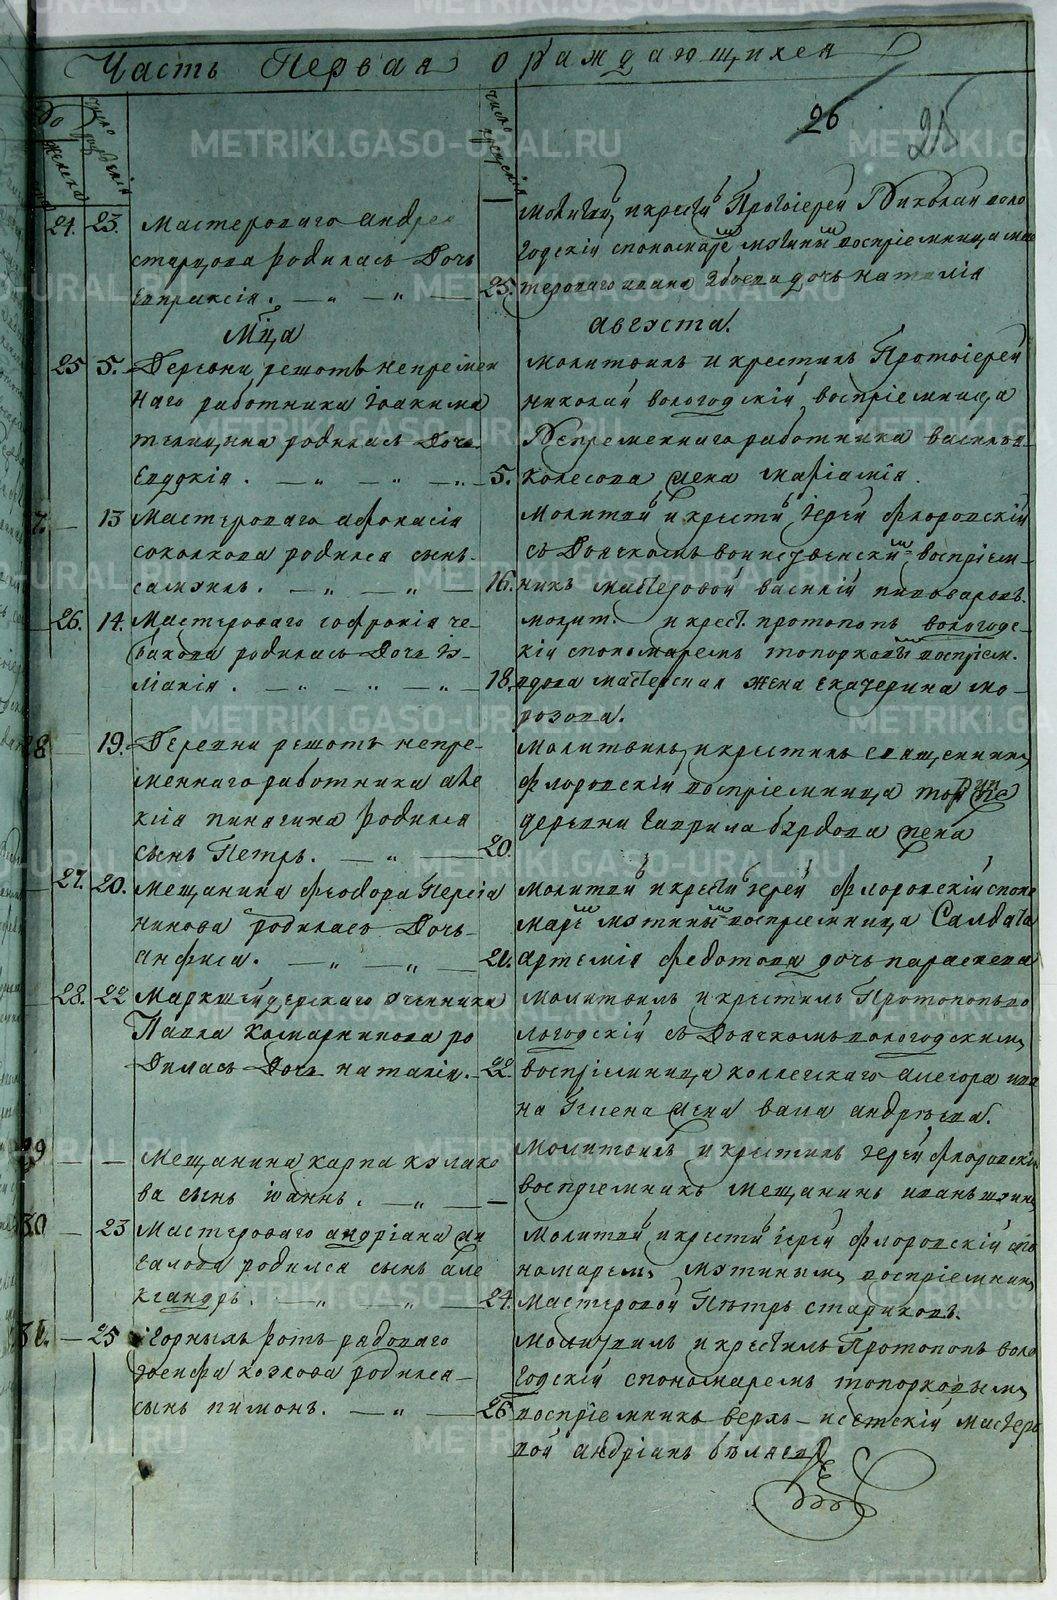 Часть Первая о раждающихся
26
25
число рождения
число крещения
24. 23. Мастероваго андрея
старцова родилась Дочь
Евпраксія.
25.
Молитвил, и крестил Протоіерей Николай воло
годскій
воспріемница мас
тероваго ивана дочь наталія
Мца
августа.
25 5. Деревни решотъ непремен
наго работника Іоакима
родилась Дочь
Евдокія.
5.
молитвилъ и крестилъ Протоіерей
николай вологодскій, воспріемница
Непременнаго работника василья
колесова жена маріамія.
27. 13 Мастероваго афонасія
соколкова родился сынъ
самуилъ.
16.
молитвил и крестил іерей флоровскій
съ Дьячкомъ воспріем
никъ мастеровой василій пивоваровъ
26. 14. Мастероваго софронія че
бакова родилась Дочь Іу
ліанія.
18.
молит. и крест. протопопъ вологодс
кій спономаремъ топорковы воспріем.
вдова мастерская жена екатерина мо
розова.
28 19. Деревни решотъ непре
меннаго работника але
ксія пинягина родился
сынъ Петръ.
20.
молитвилъ, и крестилъ священникъ
флоровскій воспріемница
деревни гаврила бурдова жена
27. 20. Мещанина феодора Персіа
нинова родилась Дочь
анфиса.
21.
молитвил и крестил іерей флоровскій споно
мар мутины воспріемница Салдата
артемія федотова дочь параскева
28. 22 Маркшейдерскаго ученика
Павла Комарникова ро
дилась Дочь наталія.
22.
молитвилъ и крестилъ Протопопъ во
логодскій съ Дьячкомъ вологодскимъ,
воспріемница коллежскаго асесора ива
на жена васа андреева.
29
Мещанина карпа кулако
ва сынъ іоаннъ.
молитвилъ и крестилъ іерей флоровскій
воспріемникъ мещанинъ иванъ
30. 23 Мастероваго андріана
родился сынъ але
ксандръ.
24.
молитвил и крестил іерей флоровскій спо
номаремъ мутинымъ, воспріемникъ
мастеровой Петръ стариковъ.
31. 25 Горныхъ ротъ рядоваго
іосифа козкова родился
сынъ пимонъ.
26
молитвилъ и крестилъ Протопопъ воло
годскій спономаремъ топорковымъ,
воспріемникъ верхъ-исетскій мастеро
вой андріанъ беляевъ